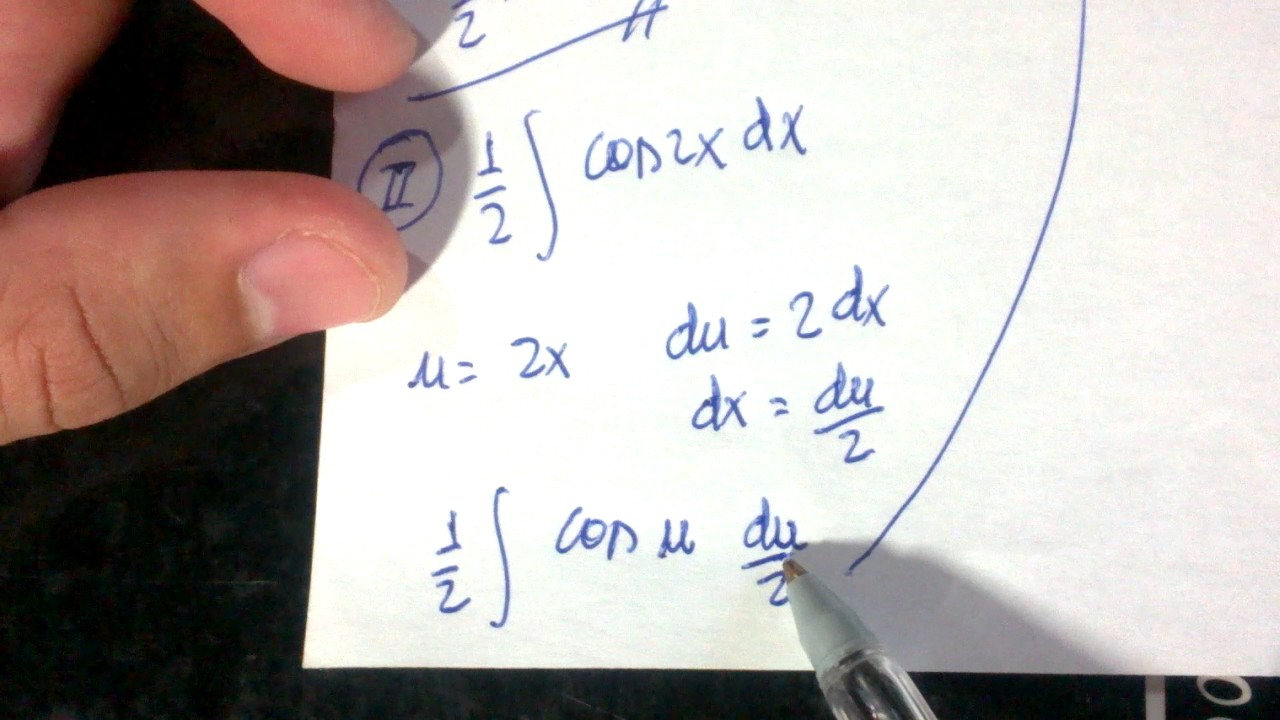 2
II 1/2 ∫ cos 2x dx
u = 2x du = 2 dx
dx = du/2
1/2 ∫ cos u du/2